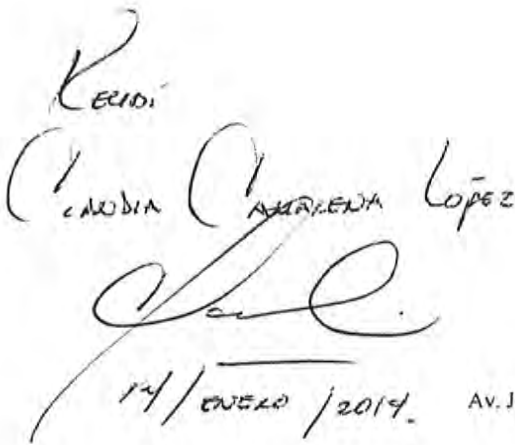 Recibí
Claudia Camarena López
14/ENERO/2014.
Av. J